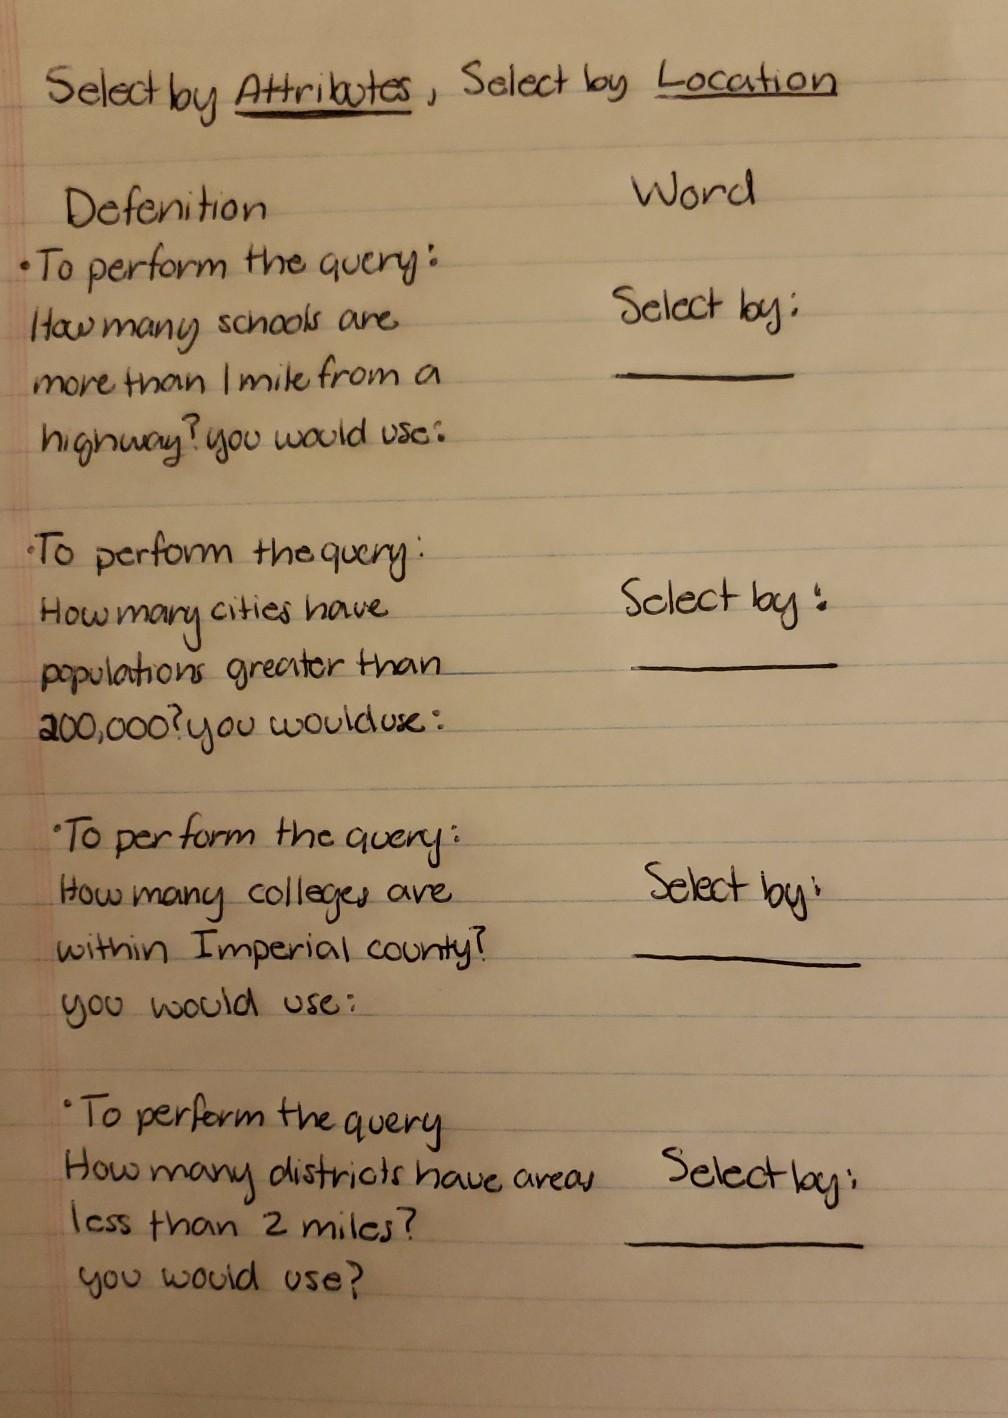 Select by Attributes, Select by Location
Defenition
Word
•To perform the query:
How many schools are
more than 1 mile from a
highway? you would use:
Select by:
•To perform the query:
How many cities have
populations greater than
200,000? you would use:
Select by:
•To perform the query:
How many colleges are
within Imperial county?
you would use:
Select by:
•To perform the query
How many districts have areas
less than 2 miles?
you would use?
Select by: